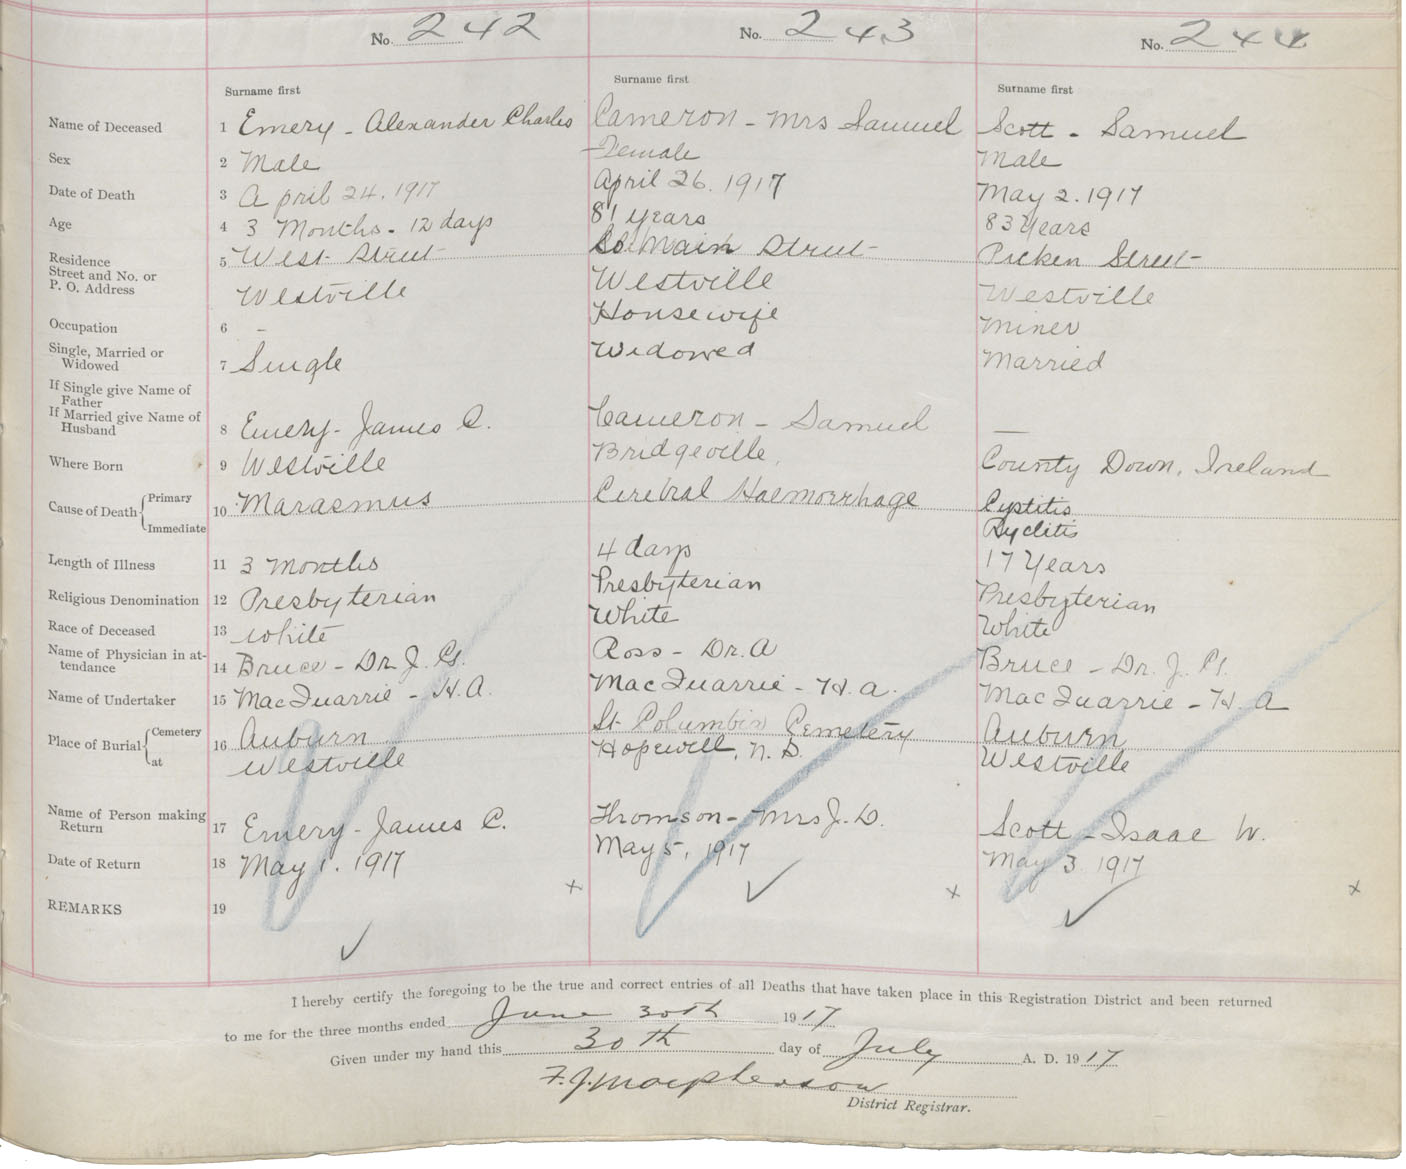 No. 242
No. 243
No. 244
Surname first
Surname first
Surname first
Name of Deceased 1 Emery - Alexander Charles Cameron - Mrs Samuel Scott - Samuel
Sex 2 Male Female Male
Date of Death 3 April 24, 1917 April 26. 1917 May 2. 1917
Age 4 3 Months - 12 days 81 years 83 Years
Residence
Street and No. or
P. O. Address
5 West Street So. Main Street Street
Westville Westville Westville
Occupation 6 - Housewife Miner
Single, Married or
Widowed
7 Single Widowed Married
If Single give Name of
Father
If Married give Name of
Husband
8 Emery - James C. Cameron - Samuel —
Where Born 9 Westville Bridgeville, County Down, Ireland
Cause of Death { Primary
Immediate
10 Marasmus Cerebral Haemorrhage Cystitis
Pyelitis
Length of Illness 11 3 Months 4 days 17 Years
Religious Denomination 12 Presbyterian Presbyterian Presbyterian
Race of Deceased 13 White White White
Name of Physician in at-
tendance
14 Bruce - Dr. J. Ross - Dr. A Bruce - Dr. J.
Name of Undertaker 15 MacQuarrie - H. A. MacQuarrie - H. A. MacQuarrie - H. A
Place of Burial { Cemetery
at
16 Auburn St. Columbia Cemetery Auburn
Westville Hopewell, N. S. Westville
Name of Person making
Return
17 Emery - James C. Thomson - Mrs J. D. Scott - Isaac W.
Date of Return 18 May 1. 1917 May 5, 1917 May 3 1917
x x x
REMARKS 19
I hereby certify the foregoing to be the true and correct entries of all Deaths that have taken place in this Registration District and been returned
to me for the three months ended June 30th 1917
Given under my hand this 30th day of July A. D. 1917
F. J. Macpherson
District Registrar.